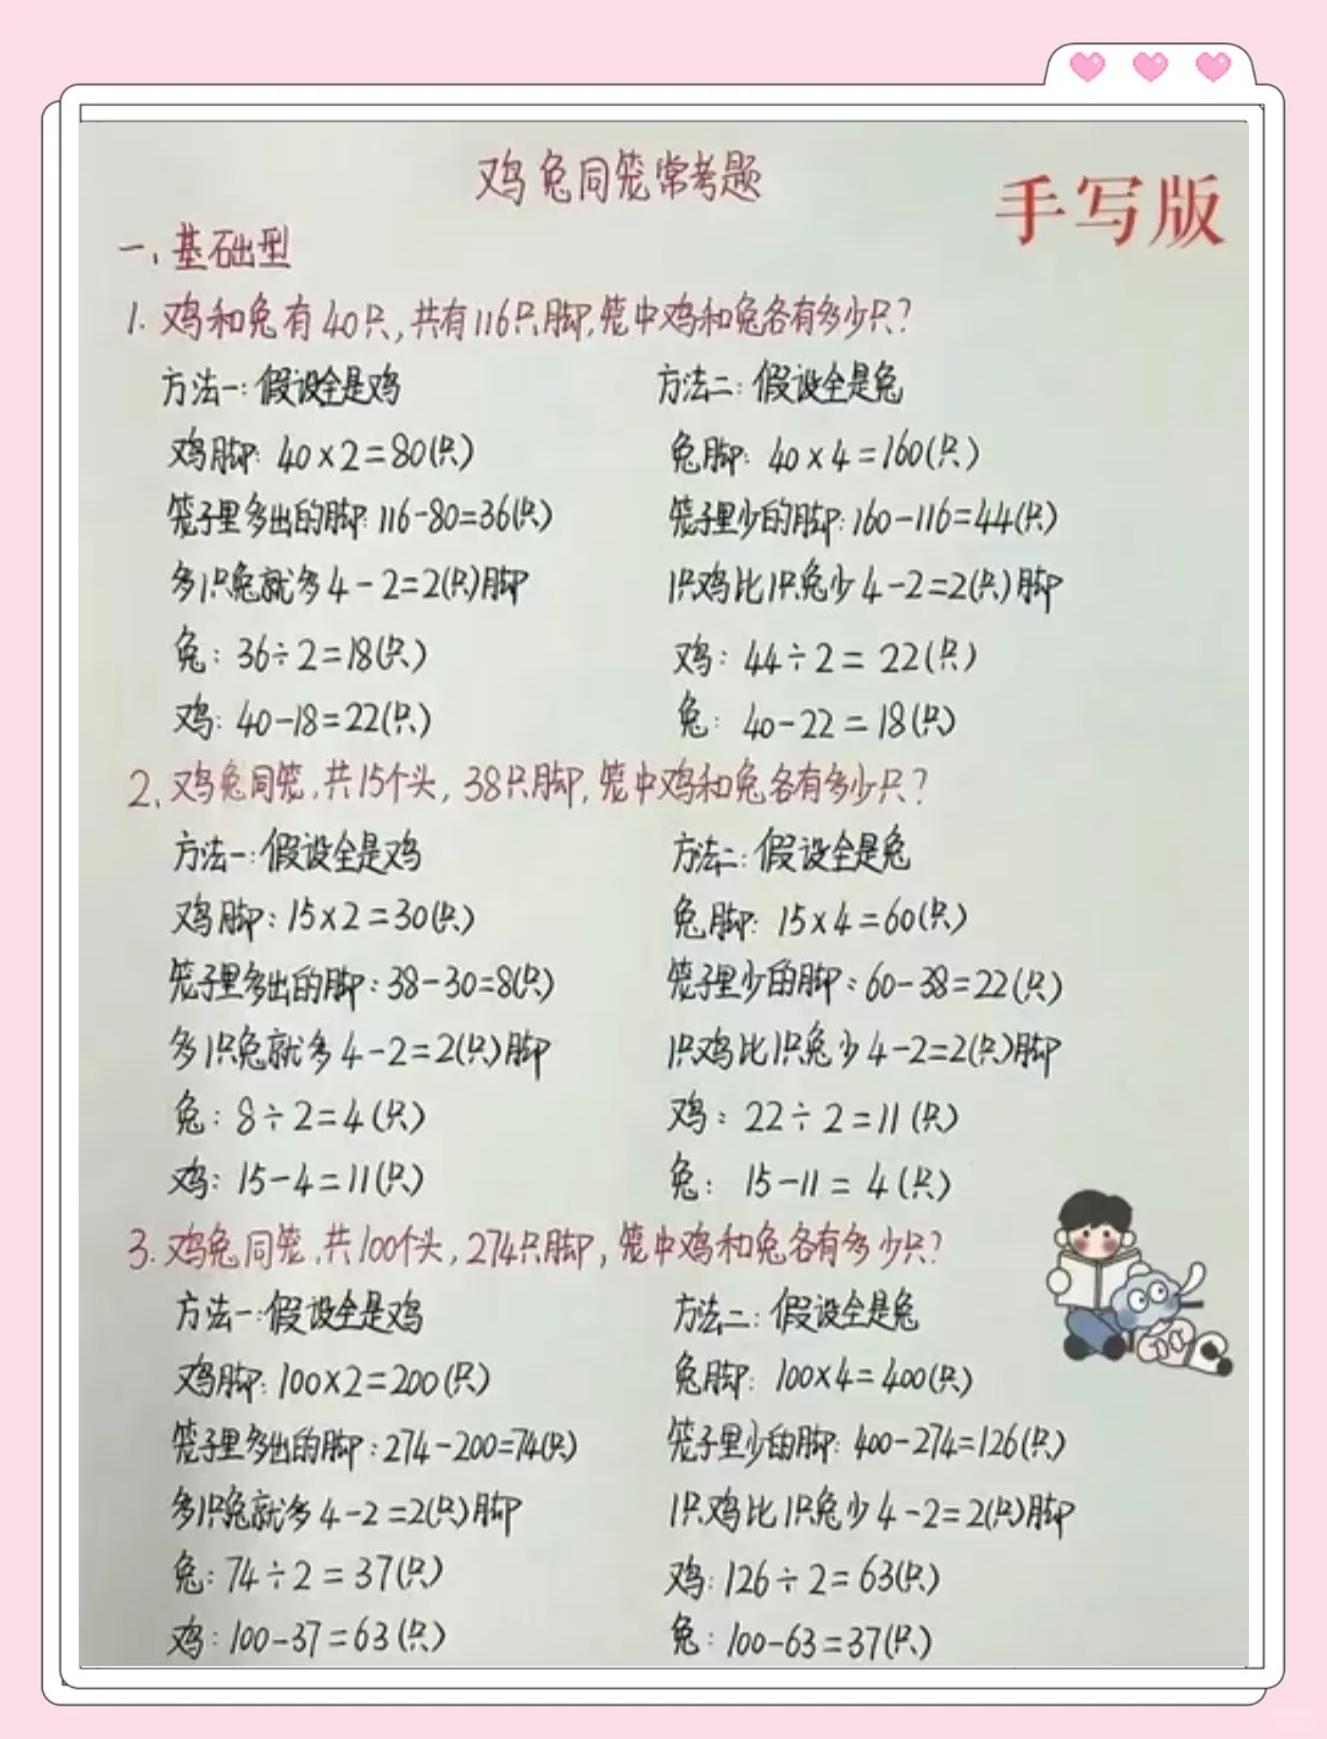 鸡兔同笼常考题
手写版
一、基础型
1. 鸡和兔有40只,共有116只脚,笼中鸡和兔各有多少只?
方法一:假设全是鸡
鸡脚:40×2=80(只)
笼子里多出的脚:116-80=36(只)
多1只兔就多4-2=2(只)脚
兔:36÷2=18(只)
鸡:40-18=22(只)
方法二:假设全是兔
兔脚:40×4=160(只)
笼子里少的脚:160-116=44(只)
1只鸡比1只兔少4-2=2(只)脚
鸡:44÷2=22(只)
兔:40-22=18(只)
2、鸡兔同笼,共15个头,38只脚,笼中鸡和兔各有多少只?
方法一:假设全是鸡
鸡脚:15×2=30(只)
笼子里多出的脚:38-30=8(只)
多1只兔就多4-2=2(只)脚
兔:8÷2=4(只)
鸡:15-4=11(只)
方法二:假设全是兔
兔脚:15×4=60(只)
笼子里少的脚:60-38=22(只)
1只鸡比1只兔少4-2=2(只)脚
鸡:22÷2=11(只)
兔:15-11=4(只)
3.鸡兔同笼,共100个头,274只脚,笼中鸡和兔各有多少只?
方法一:假设全是鸡
鸡脚:100×2=200(只)
笼子里多出的脚:274-200=74(只)
多1只兔就多4-2=2(只)脚
兔:74÷2=37(只)
鸡:100-37=63(只)
方法二:假设全是兔
兔脚:100×4=400(只)
笼子里少的脚:400-274=126(只)
1只鸡比1只兔少4-2=2(只)脚
鸡:126÷2=63(只)
兔:100-63=37(只)